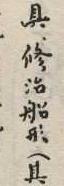 具修治船形(其